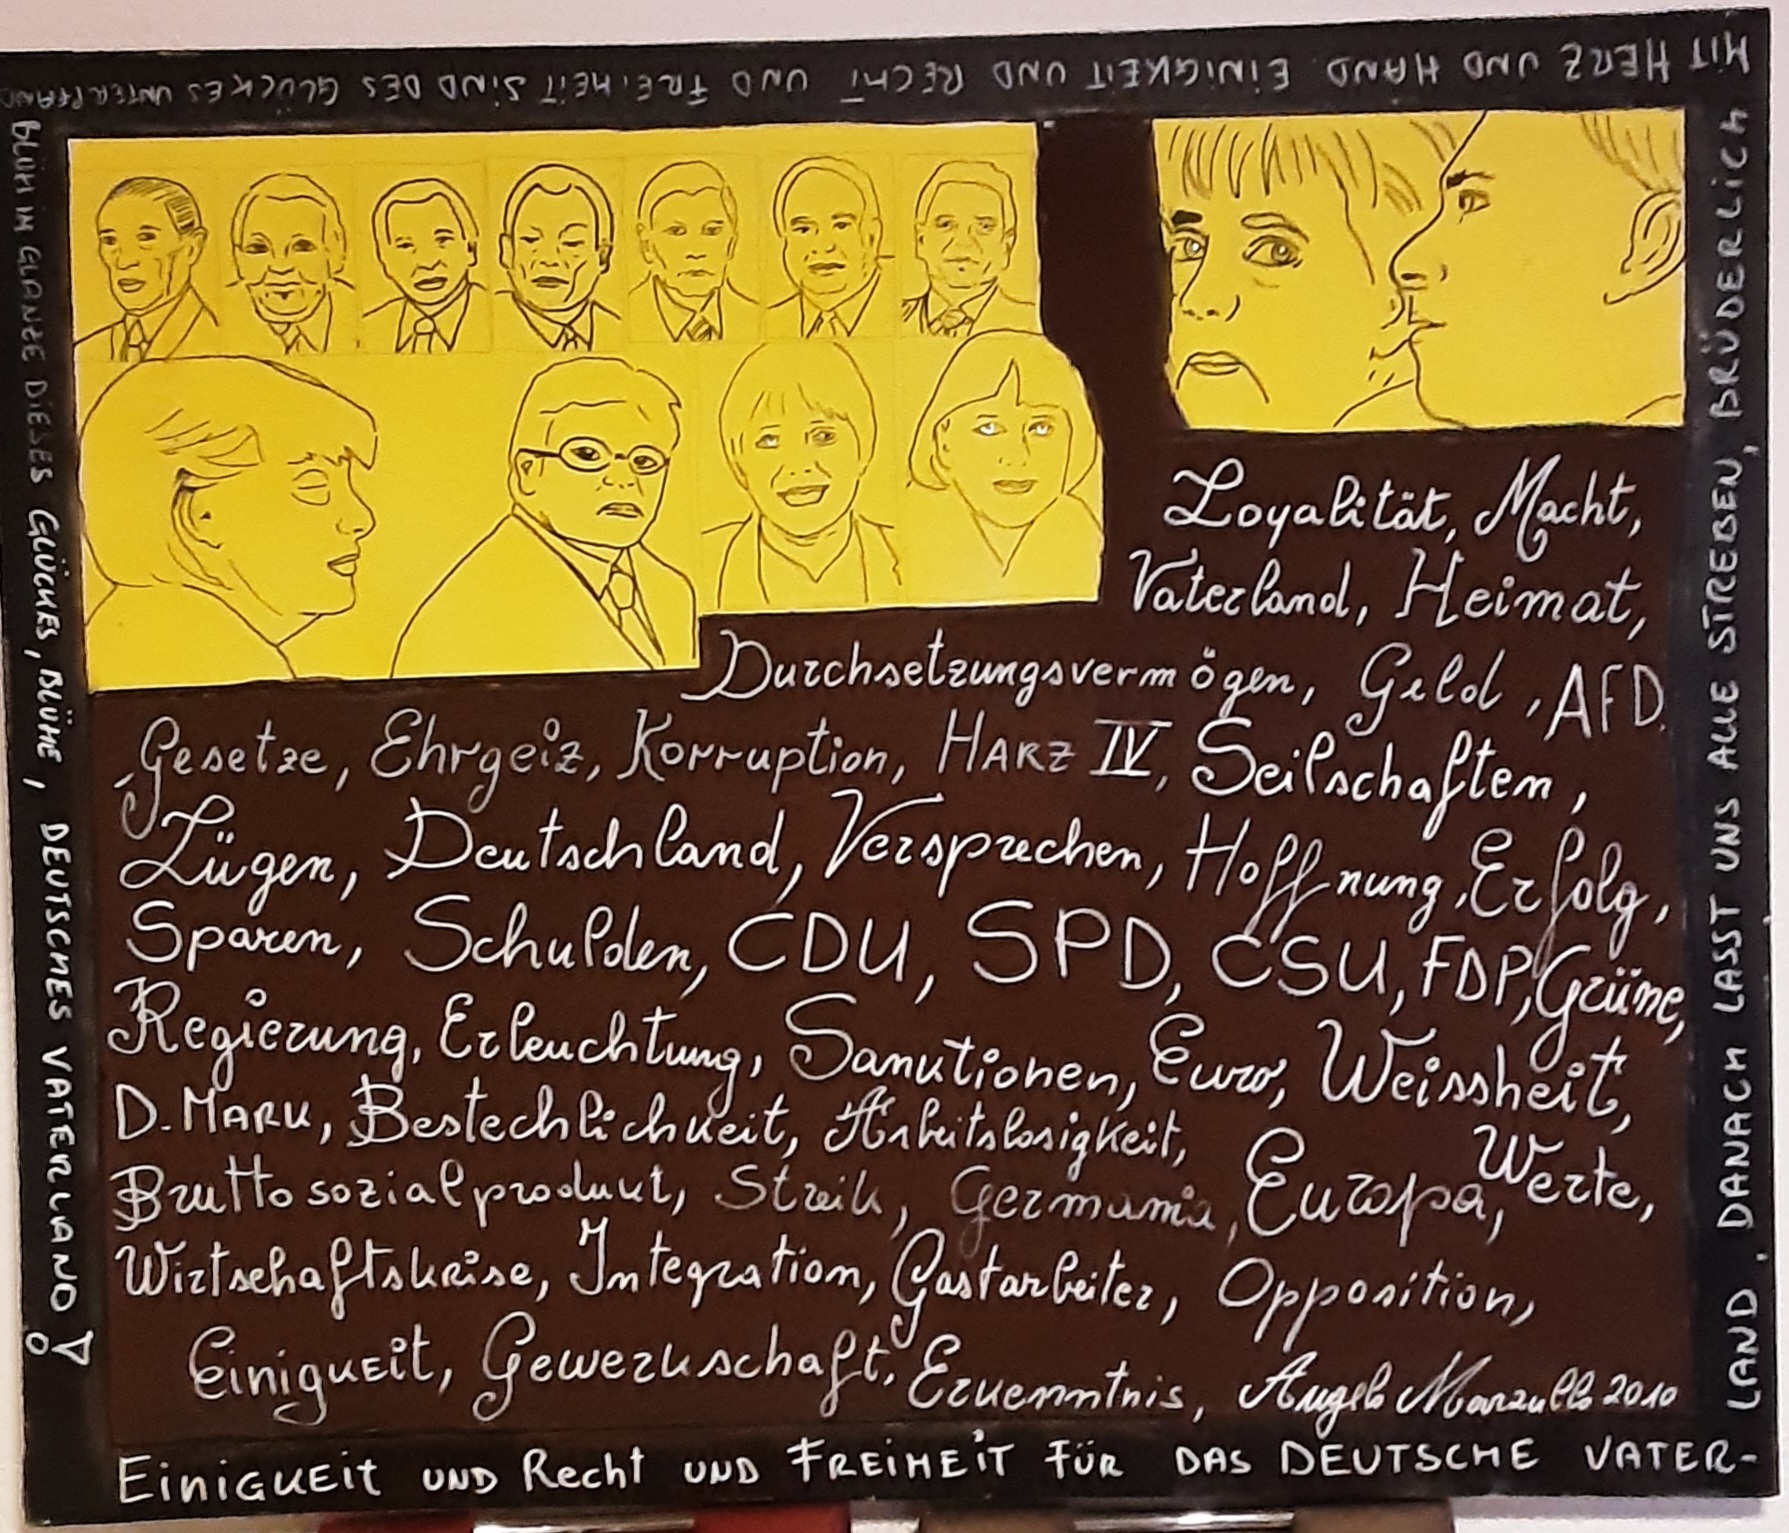 Loyalität, Macht,
Vaterland, Heimat,
Durchsetzungsvermögen, Geld, AFD.
Gesetze, Ehrgeiz, Korruption, HARZ IV, Seilschaften,
Lügen, Deutschland, Versprechen, Hoffnung, Erfolg,
Sparen, Schulden, CDU, SPD, CSU, FDP, Grüne,
Regierung, Erleuchtung, Sanktionen, Euro, Weissheit,
D. MARK, Bestechlichkeit, Arbeitslosigkeit,
Bruttosozialprodukt, Streik, Germania, Europa, Werte,
Wirtschaftskrise, Integration, Gastarbeiter, Opposition,
Einigkeit, Gewerkschaft, Erkenntnis, Angelo Marzullo 2010
EiNiGKEit UND Recht UND FREiHEiT FÜR DAS DEUTSCHE VATER-
LAND, DANACH LASST UNS ALLE STREBEN, BRÜDERLICH
MiT HERZ UND HAND. EiNiGKEiT UND RECHT UND FREiHEiT SiND DES GLÜCKES UNTERPFAND
BLÜH iM GLANZE DiESES GLÜCKES, BLÜHE, DEUTSCHES VATERLAND!